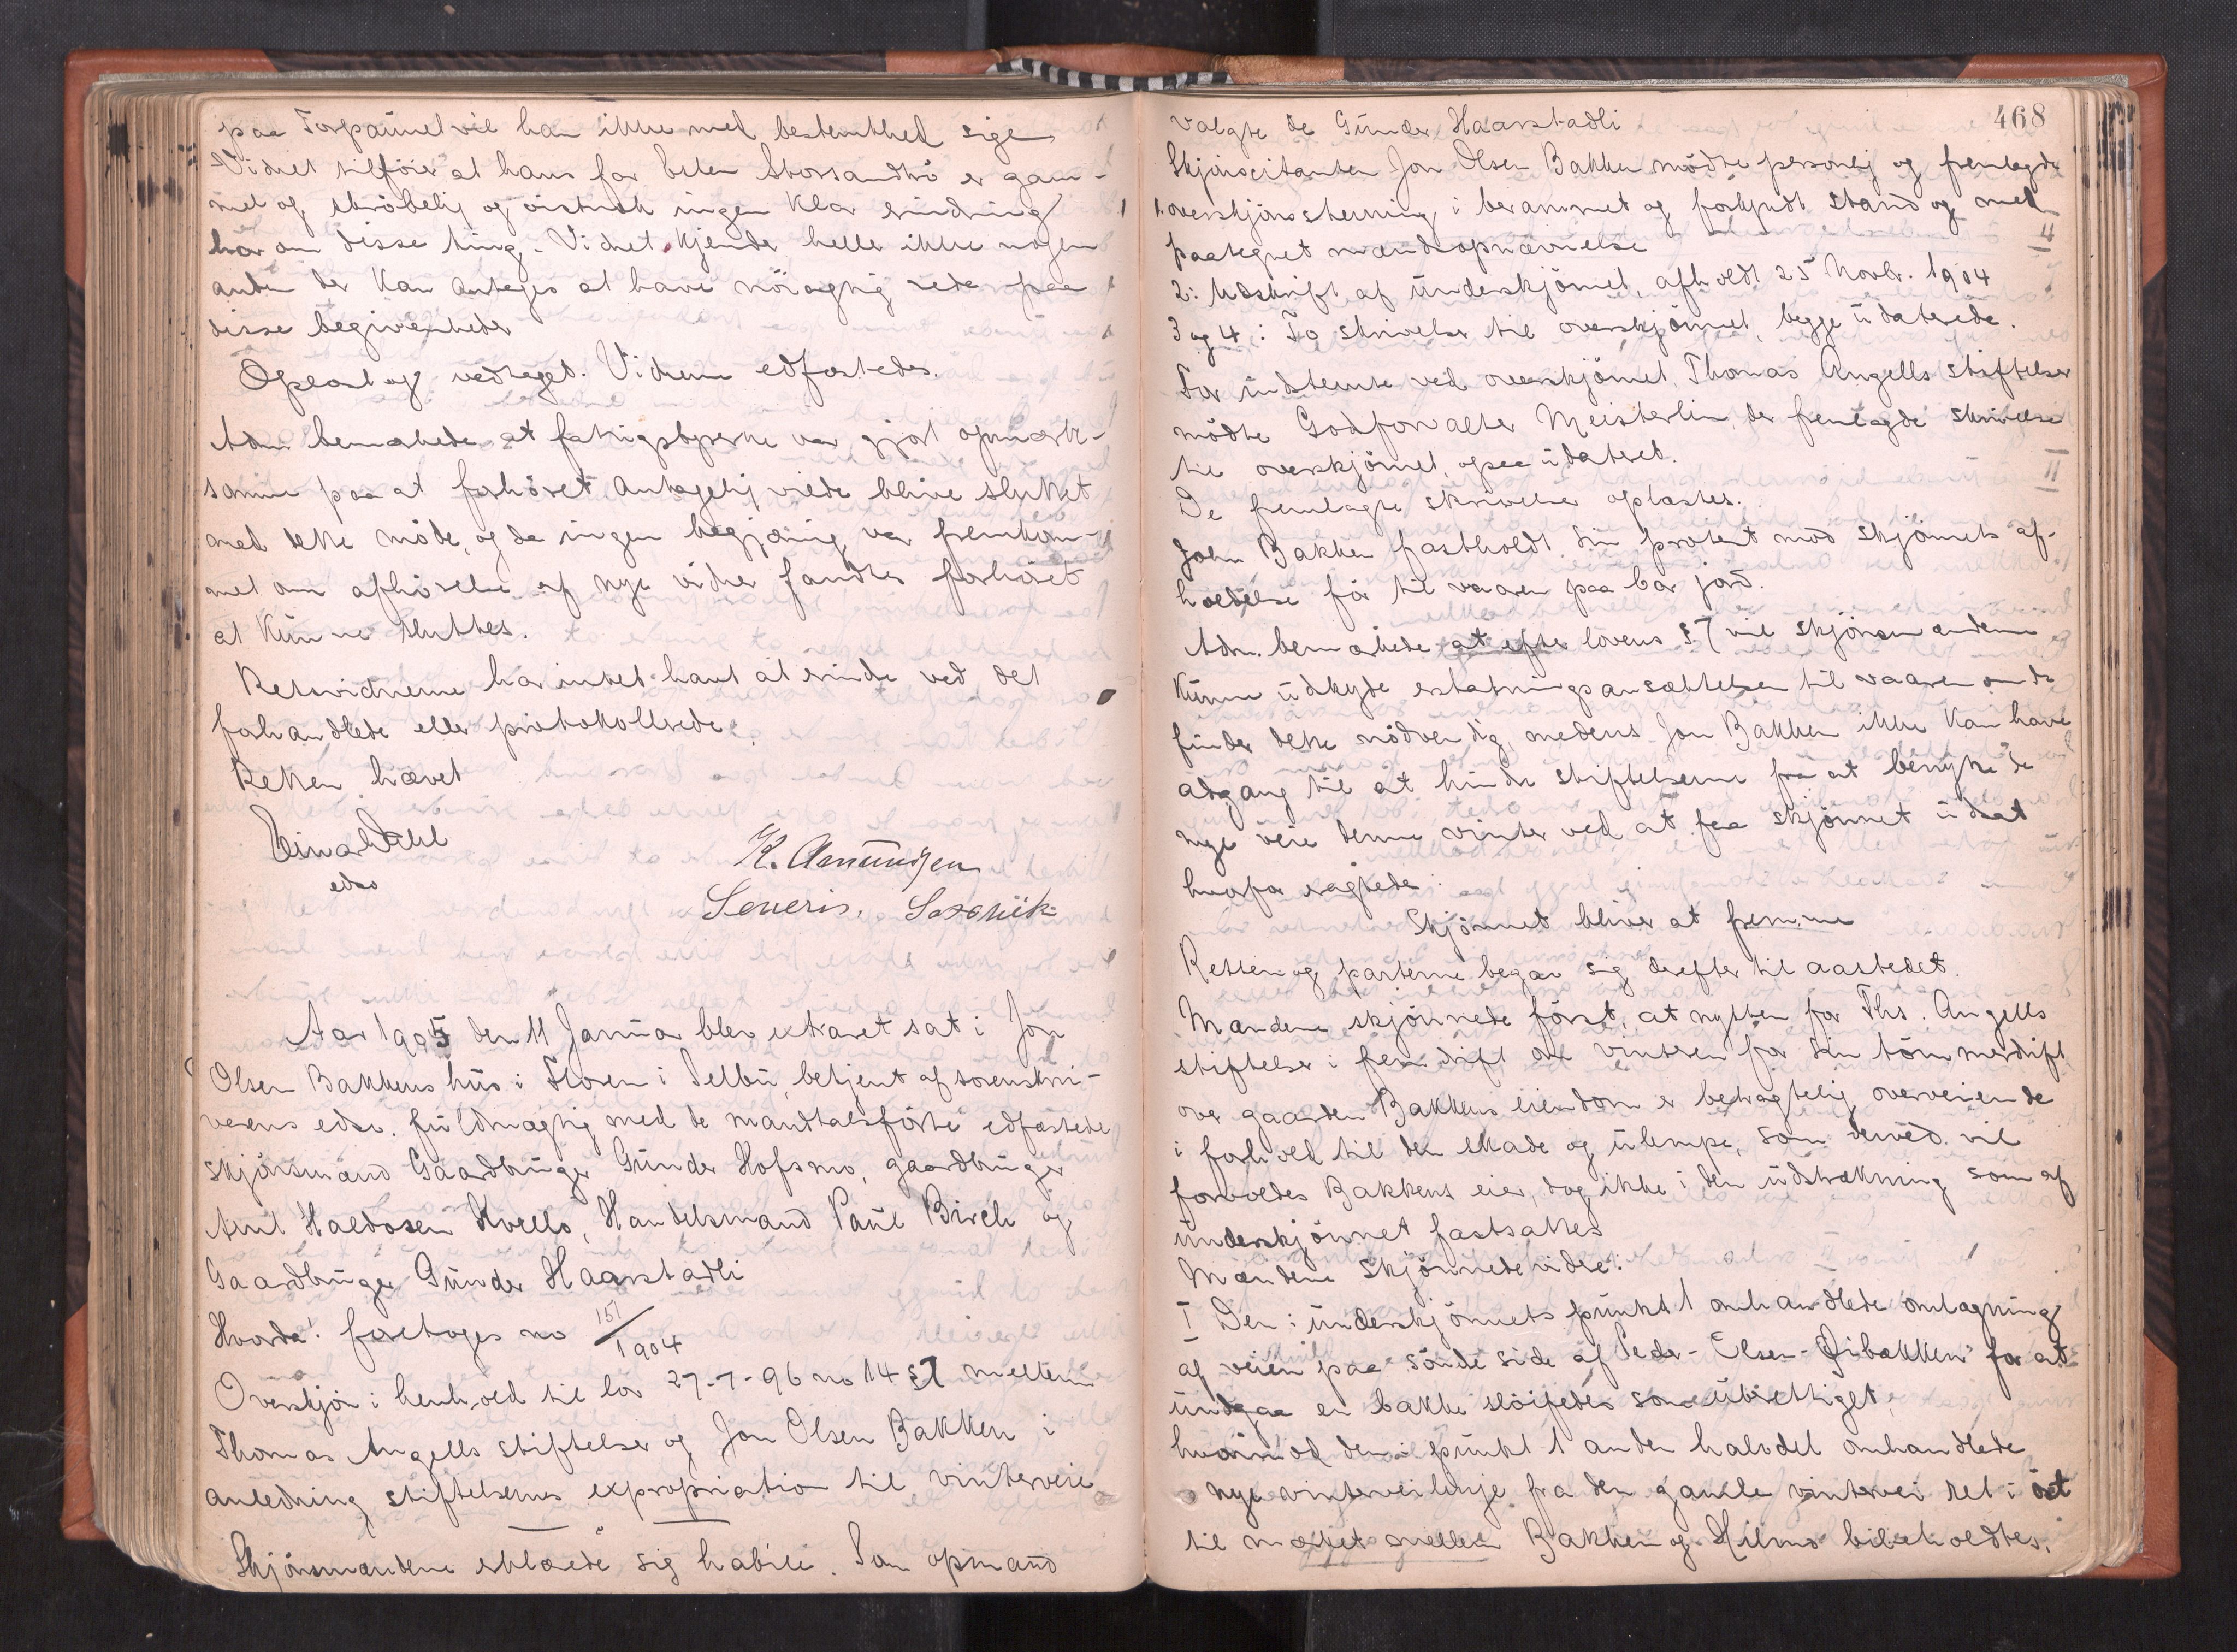 paa Torpaunet vil han ikke med bestemthed sige
Vidnet tilföier at hans far Esten Storsandmo er gam-
mel og skröbelig og vistnok ingen klar erindring
har om disse ting. Vidnet kjender heller ikke nogen
anden der kan antages at have nöiagtig rede paa
disse begivenheder
Oplæst og vedtaget. Vidnerne edfæstedes.
Adm. bemærkede at fattigstyrerne var gjort opmærk-
somme paa at forhöret antagelig vilde blive sluttet
med dette möde, og da ingen begjæring var fremkom-
met om afhörelse af nye vidner fandtes forhöret
at kunne sluttes.
Retsvidnerne har intet havt at erindre ved det
forhandlede eller protokollerede.
Retten hævet
Einar Dahl
edsv
K. Amundsen
Severin.
Aar 1905 den 11 Januar blev extraret sat i Jon
Olsen Bakkens hus i Floren i Selbu, betjent af sorenskri-
verens edsv. fuldmægtig med de mandtalsförte edfæstede
skjönsmænd Gaardbruger Gunder Hofsmo, gaardbruger
Arnt Haldosen Kvello, Handelsmand Paul Birch og
Gaardbruger Gunder Haarstadli
Hvorda! foretoges no 15/1904
Overskjön i henhold til lov 27-7-96 no 14 § 7 mellem
Thomas Angells stiftelser og Jon Olsen Bakken i
anledning stiftelsernes expropriation til vinterveie
Skjönsmændene erklærede sig habile. Som opmand
468
valgte de Gunder Haarstadli
Skjönscitanten Jon Olsen Bakken mödte personlig og fremlagde
1. overskjönsstevning i berammet og forkyndt stand og med
paategnet mændsopnævnelse
2: Udskrift af underskjönnet, afholdt 25 Novbr. 1904
3 og 4: To skrivelser til overskjönnet, begge udaterede.
For indstevnte ved overskjönnet, Thomas Angells stiftelser
mödte Godsforvalter Meisterlin, der fremlagde skrivelse
til overskjönnet, ogsaa udateret.
De fremlagte skrivelser oplæstes.
John Bakken fastholdt sin protest mod skjönnets af-
holdelse för til vaaren paa bar jord.
Adm. bemærkede at efter lovens § 7 vil skjönsmændene
kunne udskyde erstatningsansættelsen til vaaren om de
finder dette nödvendig medens Jon Bakken ikke kan have
adgang til at hindre stiftelserne fra at benytte de
nye veie denne vinter ved at faa skjönnet udsat
hvorfor eragtedes:
Skjönnet bliver at fremme
Retten og parterne begav sig derefter til aastedet.
Mændene skjönnede först, at nytten for Ths. Angells
stiftelser i fremdrift om vinteren for sin tömmerdrift
over gaarden Bakkens eiendom er betragtelig overveiende
i forhold til den skade og ulempe, som derved vil
forvoldes Bakkens eier, dog ikke i den udstrækning som af
underskjönnet fastsattes
Mændene skjönnede videre:
I Den i underskjönnets punkt 1 omhandlede omlægning
af veien paa söndre side af Peder-Olsen-Öibakken for at
undgaa en bakke slöifedes som uberettiget,
hvorimod den i punkt 1 anden halvdel omhandlede
nye vinterveilinje fra den gamle vintervei ret i öst
til mærket mellem Bakken og Hilmo bibeholdtes,